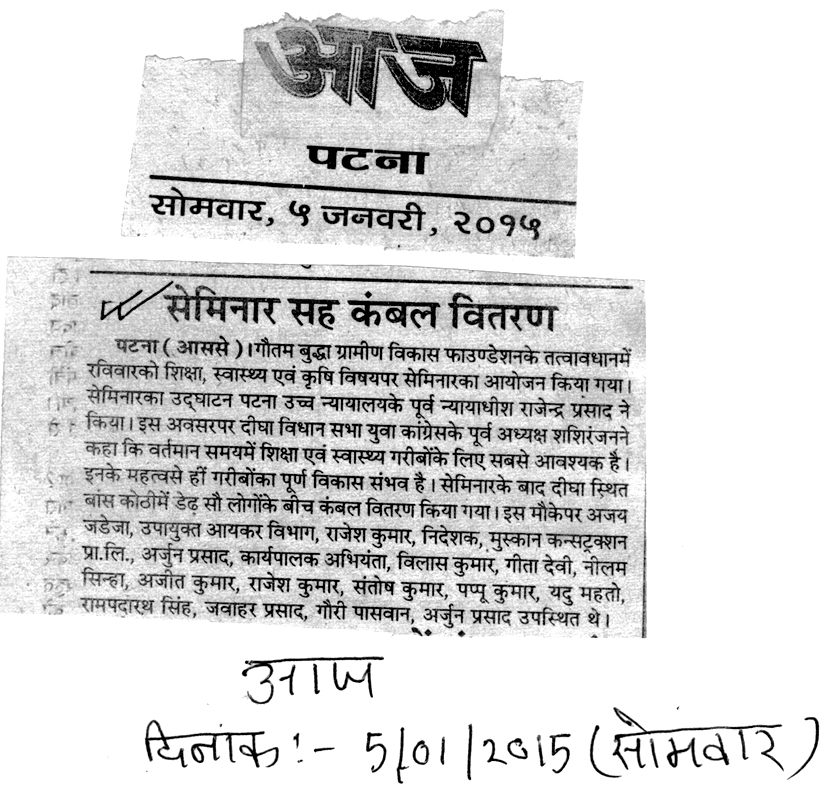 आज
पटना
सोमवार, ५ जनवरी, २०१५
सेमिनार सह कंबल वितरण
पटना (आससे)। गौतम बुद्धा ग्रामीण विकास फाउण्डेशनके तत्वावधानमें
रविवारको शिक्षा, स्वास्थ्य एवं कृषि विषयपर सेमिनारका आयोजन किया गया।
सेमिनारका उद्घाटन पटना उच्च न्यायालयके पूर्व न्यायाधीश राजेन्द्र प्रसाद ने
किया। इस अवसरपर दीघा विधान सभा युवा कांग्रेसके पूर्व अध्यक्ष शशिरंजनने
कहा कि वर्तमान समयमें शिक्षा एवं स्वास्थ्य गरीबोंके लिए सबसे आवश्यक है।
इनके महत्वसे हीं गरीबोंका पूर्ण विकास संभव है। सेमिनारके बाद दीघा स्थित
बांस कोठीमें डेढ़ सौ लोगोंके बीच कंबल वितरण किया गया। इस मौकेपर अजय
जडेजा, उपायुक्त आयकर विभाग, राजेश कुमार, निदेशक, मुस्कान कन्सट्रक्शन
प्रा.लि., अर्जुन प्रसाद, कार्यपालक अभियंता, विलास कुमार, गीता देवी, नीलम
सिन्हा, अजीत कुमार, राजेश कुमार, संतोष कुमार, पप्पू कुमार, यदु महतो,
रामपदारथ सिंह, जवाहर प्रसाद, गौरी पासवान, अर्जुन प्रसाद उपस्थित थे।
आज
दिनांक:- 5/01/2015 (सोमवार)